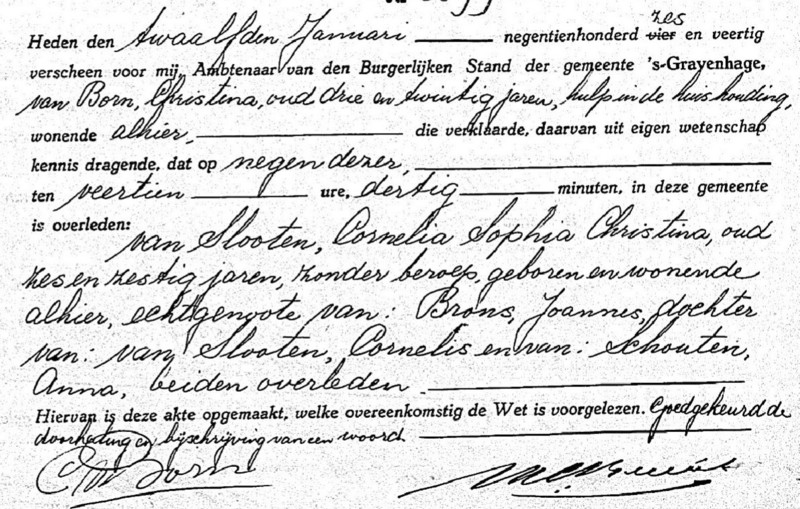 Heden den twaalfden Januari negentienhonderd zes vier en veertig
verscheen voor mij, Ambtenaar van den Burgerlijken Stand der gemeente 's-Gravenhage,
van Born, Christina, oud drie en twintig jaren, hulp in de huishouding,
wonende alhier, die verklaarde, daarvan uit eigen wetenschap
kennis dragende, dat op negen dezer,
ten veertien ure, dertig minuten, in deze gemeente
is overleden:
van Slooten, Cornelia Sophia Christina, oud
zes en zestig jaren, zonder beroep, geboren en wonende
alhier, echtgenoote van: Brons, Joannes, dochter
van: van Slooten, Cornelis en van: Schouten,
Anna, beiden overleden.
Hiervan is deze akte opgemaakt, welke overeenkomstig de Wet is voorgelezen. Goedgekeurd de
doorhaling en bijschrijving van een woord.
Born